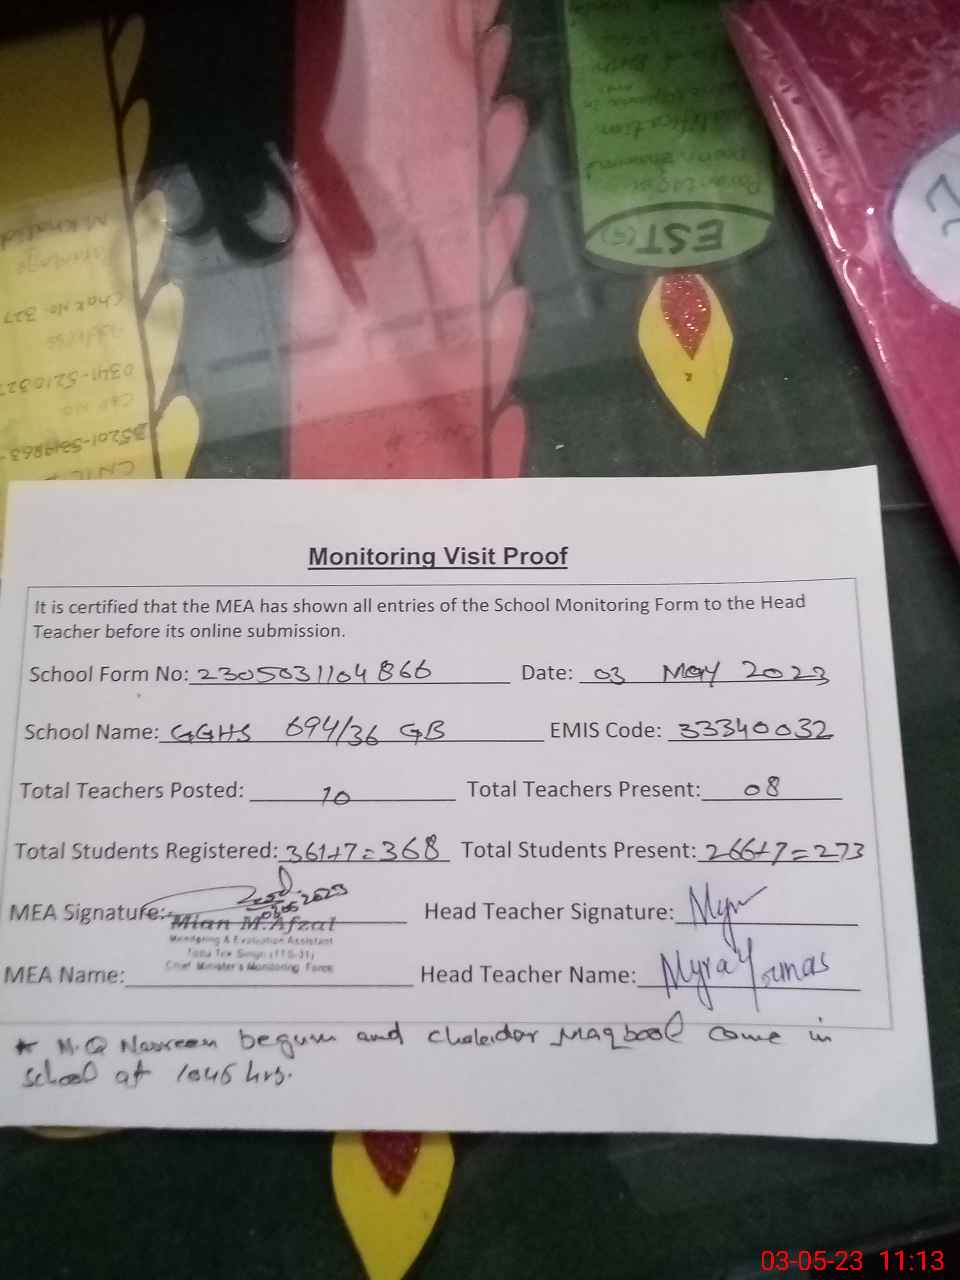 EST(S)
Chak No. 327
CNIC #
Monitoring Visit Proof
It is certified that the MEA has shown all entries of the School Monitoring Form to the Head
Teacher before its online submission.
School Form No: 2305031104866 Date: 03 May 2023
School Name: GGHS 694/36 GB EMIS Code: 33340032
Total Teachers Posted: 10 Total Teachers Present: 08
Total Students Registered: 361+7=368 Total Students Present: 266+7=273
MEA Signature: Head Teacher Signature:
Mian M.Afzal
Monitoring & Evaluation Assistant
Toba Tek Singh (TTS-31)
Chief Minister's Monitoring Force
MEA Name: Head Teacher Name: Myra Younas
* N.Q Nasreen begum and chokidar Maqbool come in
school at 1045 hrs.
03-05-23 11:13